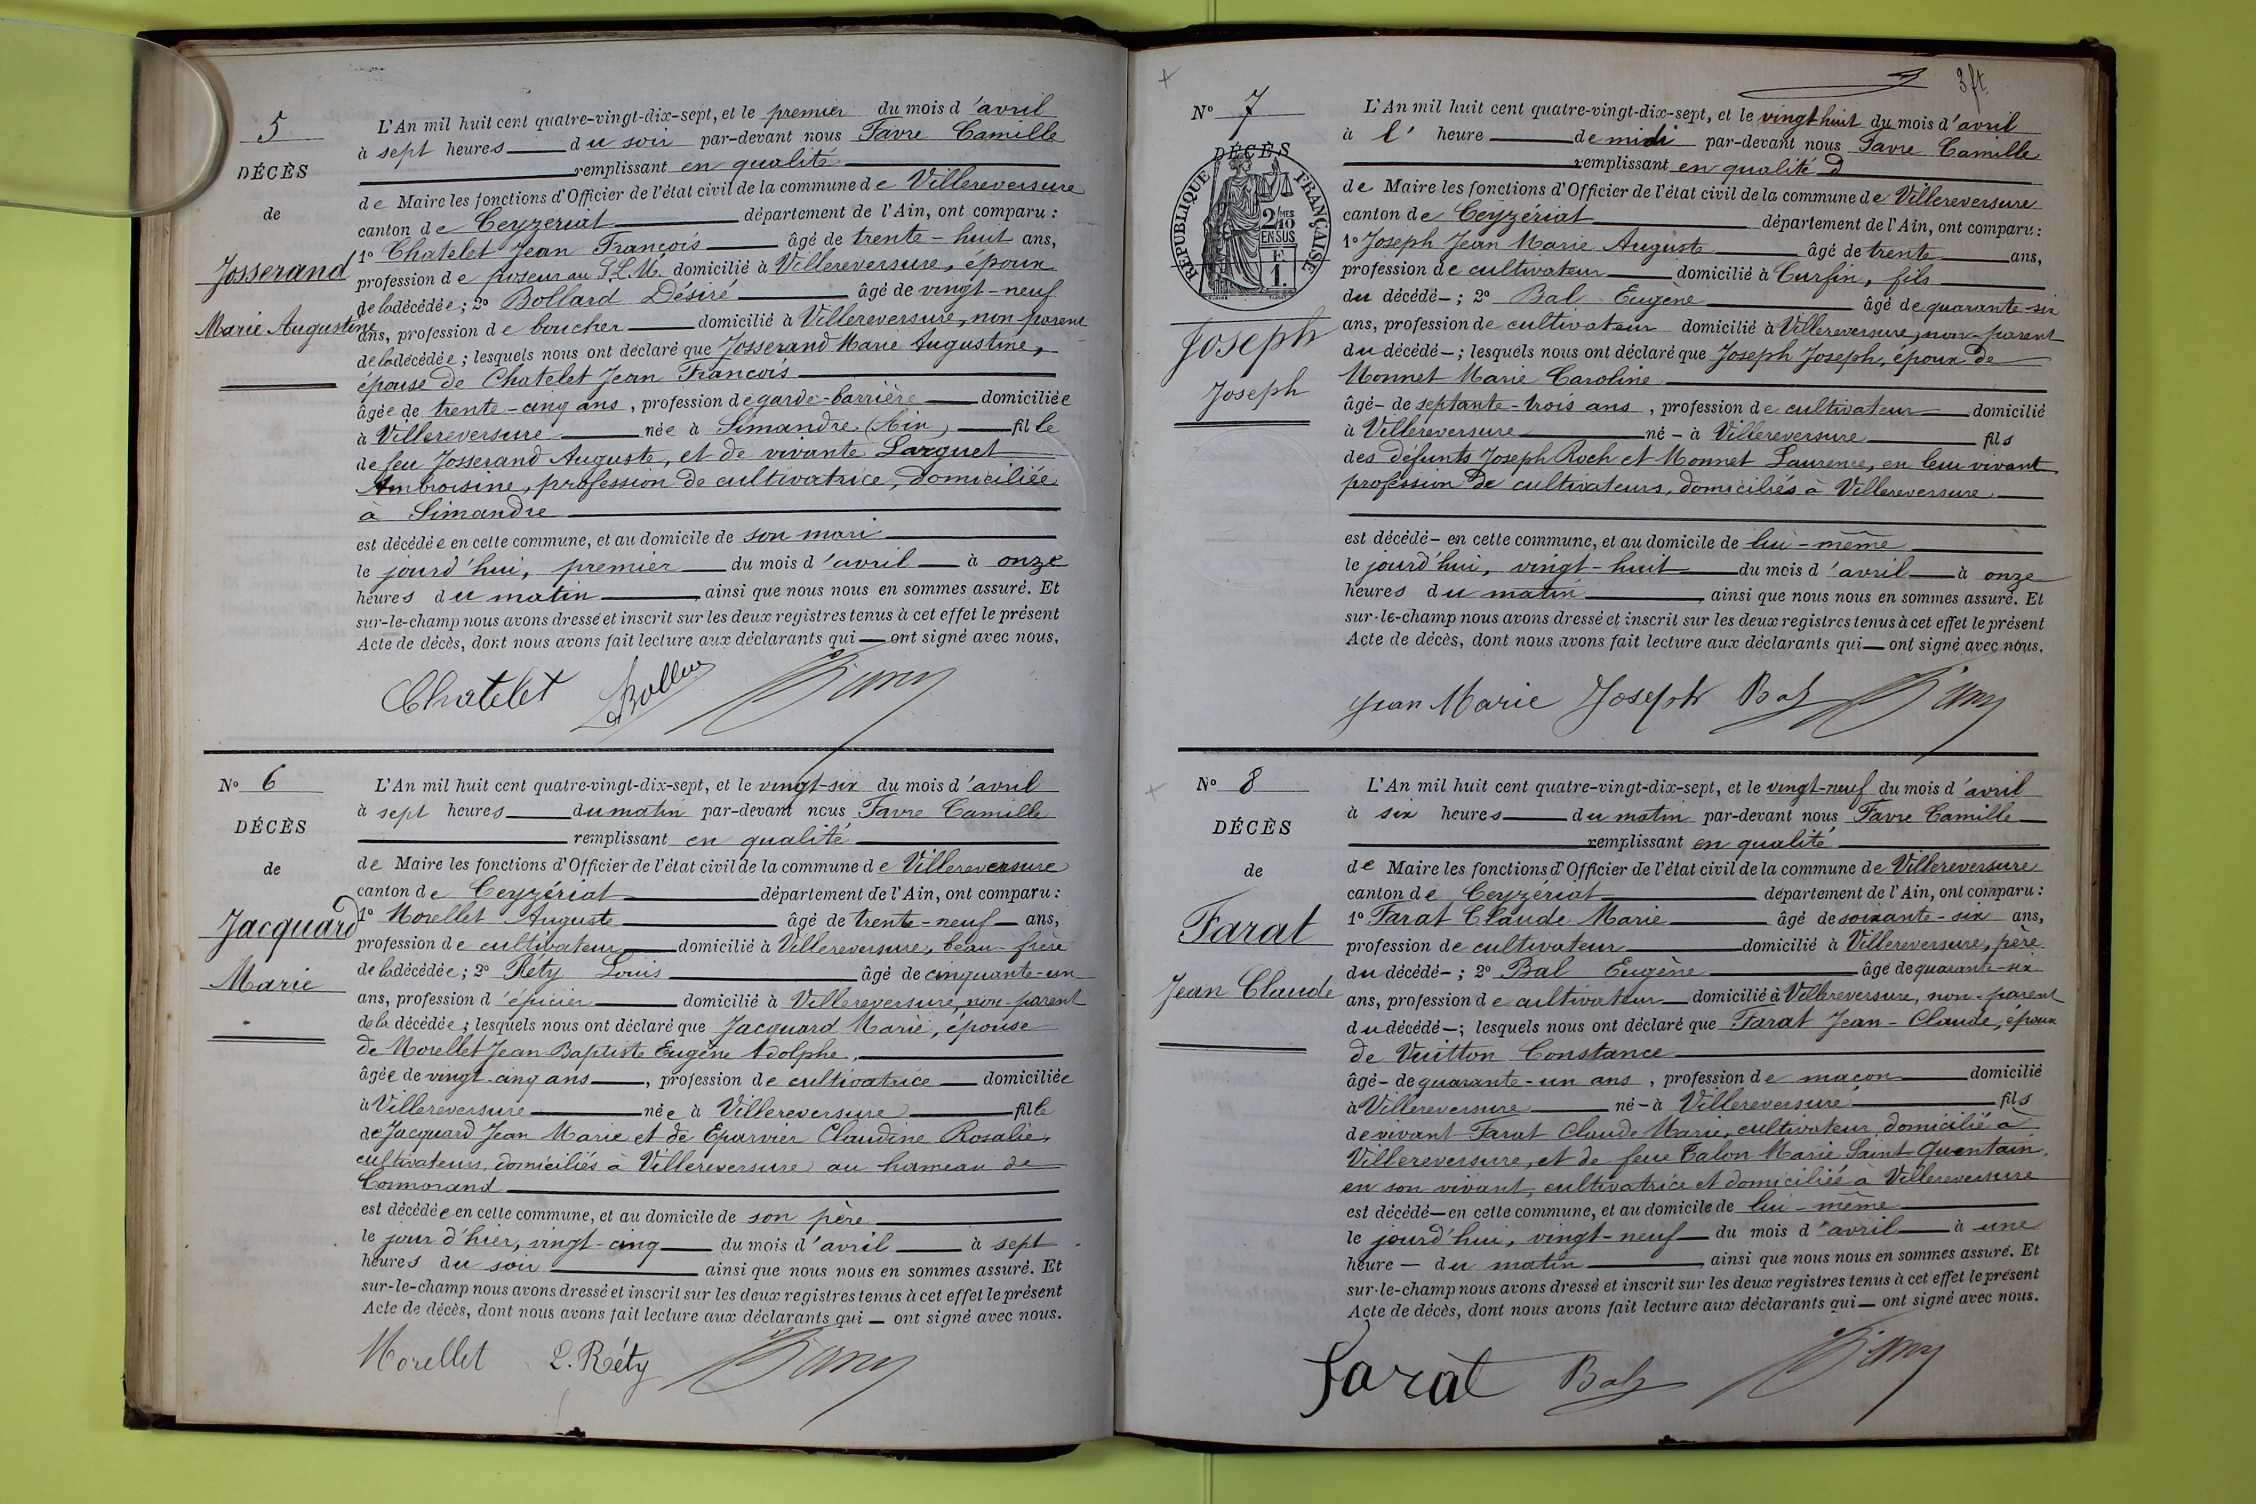 5
DÉCÈS
de
Josserand
Marie Augustine
L'An mil huit cent quatre-vingt-dix-sept, et le premier du mois d'avril
à sept heures du soir par-devant nous Favre Camille
remplissant en qualité
de Maire les fonctions d'Officier de l'état civil de la commune de Villereversure
canton de Ceyzériat département de l'Ain, ont comparu :
1º Chatelet Jean François âgé de trente-huit ans,
profession de poseur au P.L.M. domicilié à Villereversure, époux
de la décédée ; 2º Bollard Désiré âgé de vingt-neuf
ans, profession de boucher domicilié à Villereversure, non-parent
de la décédée ; lesquels nous ont déclaré que Josserand Marie Augustine,
épouse de Chatelet Jean François
âgée de trente-cinq ans, profession de garde-barrière domiciliée
à Villereversure née à Simandre (Ain) fille
de feu Josserand Auguste, et de vivante Larguet
Ambroisine, profession de cultivatrice, domiciliée
à Simandre
est décédée en cette commune, et au domicile de son mari
le jourd'hui, premier du mois d'avril à onze
heures du matin, ainsi que nous nous en sommes assuré. Et
sur-le-champ nous avons dressé et inscrit sur les deux registres tenus à cet effet le présent
Acte de décès, dont nous avons fait lecture aux déclarants qui — ont signé avec nous.
Chatelet
Nº 6
DÉCÈS
de
Jacquard
Marie
L'An mil huit cent quatre-vingt-dix-sept, et le vingt-six du mois d'avril
à sept heures du matin par-devant nous Favre Camille
remplissant en qualité
de Maire les fonctions d'Officier de l'état civil de la commune de Villereversure
canton de Ceyzériat département de l'Ain, ont comparu :
1º Morellet Auguste âgé de trente-neuf ans,
profession de cultivateur domicilié à Villereversure, beau-frère
de la décédée ; 2º Réty Louis âgé de cinquante-un
ans, profession d'épicier domicilié à Villereversure, non-parent
de la décédée ; lesquels nous ont déclaré que Jacquard Marie, épouse
de Morellet Jean Baptiste Eugène Adolphe,
âgée de vingt-cinq ans, profession de cultivatrice domiciliée
à Villereversure née à Villereversure fille
de Jacquard Jean Marie et de Eparvier Claudine Rosalie,
cultivateurs, domiciliés à Villereversure au hameau de
Cormorand
est décédée en cette commune, et au domicile de son père
le jour d'hier, vingt-cinq du mois d'avril à sept
heures du soir ainsi que nous nous en sommes assuré. Et
sur-le-champ nous avons dressé et inscrit sur les deux registres tenus à cet effet le présent
Acte de décès, dont nous avons fait lecture aux déclarants qui — ont signé avec nous.
Morellet L. Réty
3 ft.
Nº 7
DÉCÈS
RÉPUBLIQUE FRANÇAISE
2/10
EN SUS
F
1.
Joseph
Joseph
L'An mil huit cent quatre-vingt-dix-sept, et le vingt-huit du mois d'avril
à l' heure de midi par-devant nous Favre Camille
remplissant en qualité d
de Maire les fonctions d'Officier de l'état civil de la commune de Villereversure
canton de Ceyzériat département de l'Ain, ont comparu :
1º Joseph Jean Marie Auguste âgé de trente ans,
profession de cultivateur domicilié à Curfin, fils
du décédé – ; 2º Bal Eugène âgé de quarante-six
ans, profession de cultivateur domicilié à Villereversure, non-parent
du décédé – ; lesquels nous ont déclaré que Joseph Joseph, époux de
Monnet Marie Caroline
âgé - de septante-trois ans, profession de cultivateur domicilié
à Villereversure né - à Villereversure fils
des défunts Joseph Roch et Monnet Laurence, en leur vivant
profession de cultivateurs, domiciliés à Villereversure
est décédé – en cette commune, et au domicile de lui-même
le jourd'hui, vingt-huit du mois d'avril à onze
heures du matin, ainsi que nous nous en sommes assuré. Et
sur-le-champ nous avons dressé et inscrit sur les deux registres tenus à cet effet le présent
Acte de décès, dont nous avons fait lecture aux déclarants qui — ont signé avec nous.
Jean Marie Joseph Bal
Nº 8
DÉCÈS
de
Farat
Jean Claude
L'An mil huit cent quatre-vingt-dix-sept, et le vingt-neuf du mois d'avril
à six heures du matin par-devant nous Favre Camille
remplissant en qualité
de Maire les fonctions d'Officier de l'état civil de la commune de Villereversure
canton de Ceyzériat département de l'Ain, ont comparu :
1º Farat Claude Marie âgé de soixante-six ans,
profession de cultivateur domicilié à Villereversure, père
du décédé – ; 2º Bal Eugène âgé de quarante-six
ans, profession de cultivateur domicilié à Villereversure, non-parent
du décédé – ; lesquels nous ont déclaré que Farat Jean-Claude, époux
de Vuitton Constance
âgé - de quarante-un ans, profession de maçon domicilié
à Villereversure né - à Villereversure fils
de vivant Farat Claude Marie, cultivateur domicilié à
Villereversure, et de feue Talon Marie Saint Quentain,
en son vivant, cultivatrice et domiciliée à Villereversure
est décédé — en cette commune, et au domicile de lui-même
le jourd'hui, vingt-neuf du mois d'avril à une
heure — du matin, ainsi que nous nous en sommes assuré. Et
sur-le-champ nous avons dressé et inscrit sur les deux registres tenus à cet effet le présent
Acte de décès, dont nous avons fait lecture aux déclarants qui — ont signé avec nous.
Farat Bal